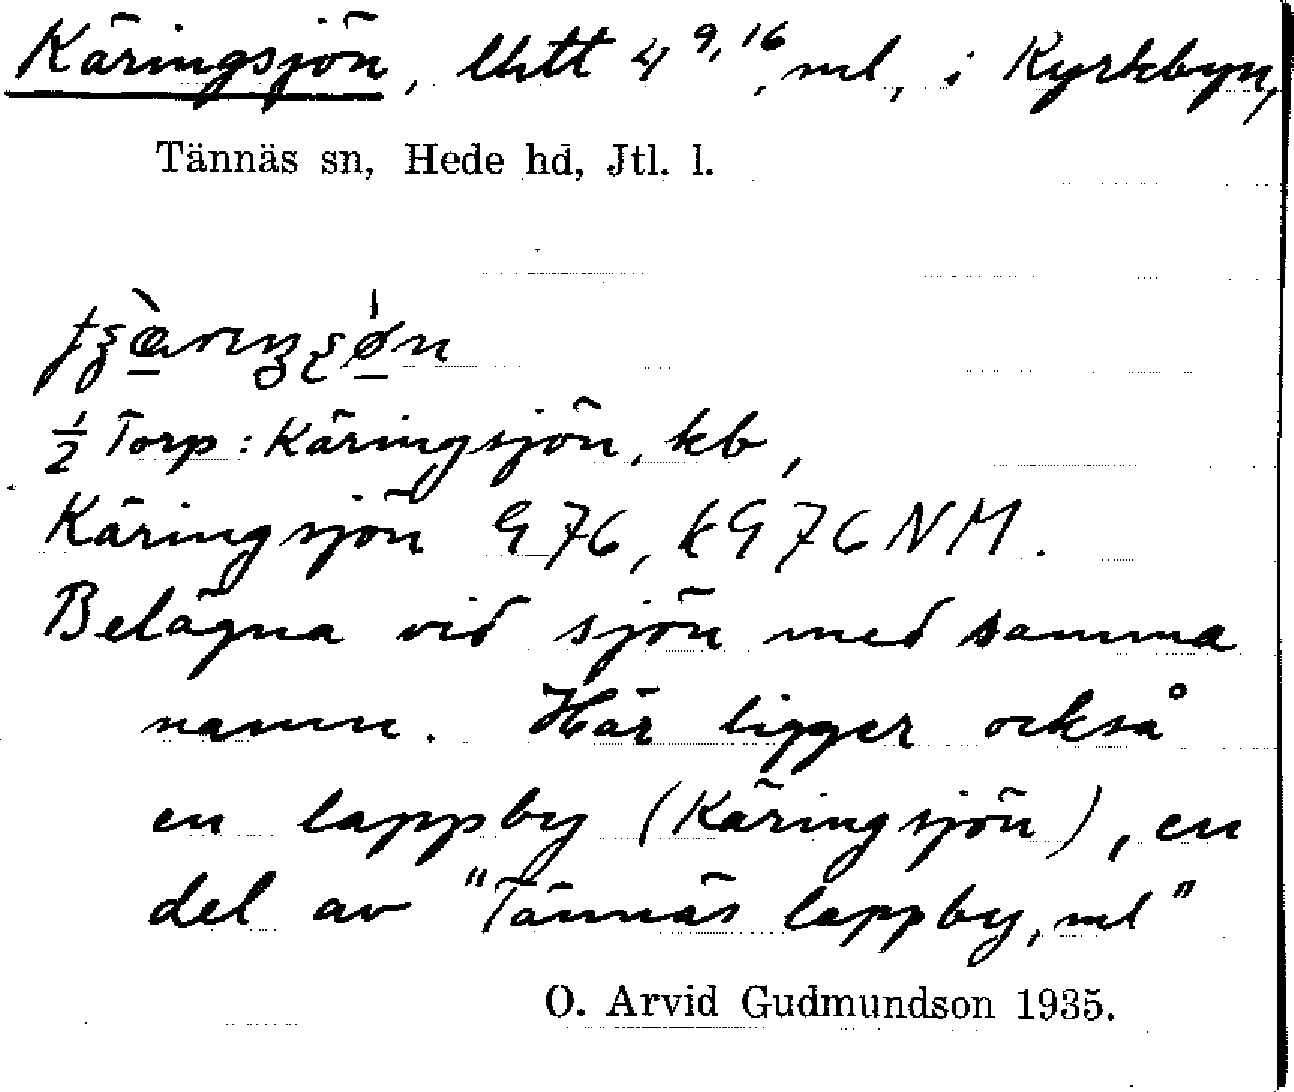 Käringsjön, Utitt 4 9, 16, ml, i Kyrkbyn,
Tännäs sn, Hede hd, Jtl. l.
½ Torp: Käringsjön, kb,
Käringsjön G76, kG76NM.
Belägna vid sjön med samma
namn. Här ligger också
en lappby (Käringsjön), en
del av "Tännäs lappby, ml"
O. Arvid Gudmundson 1935.